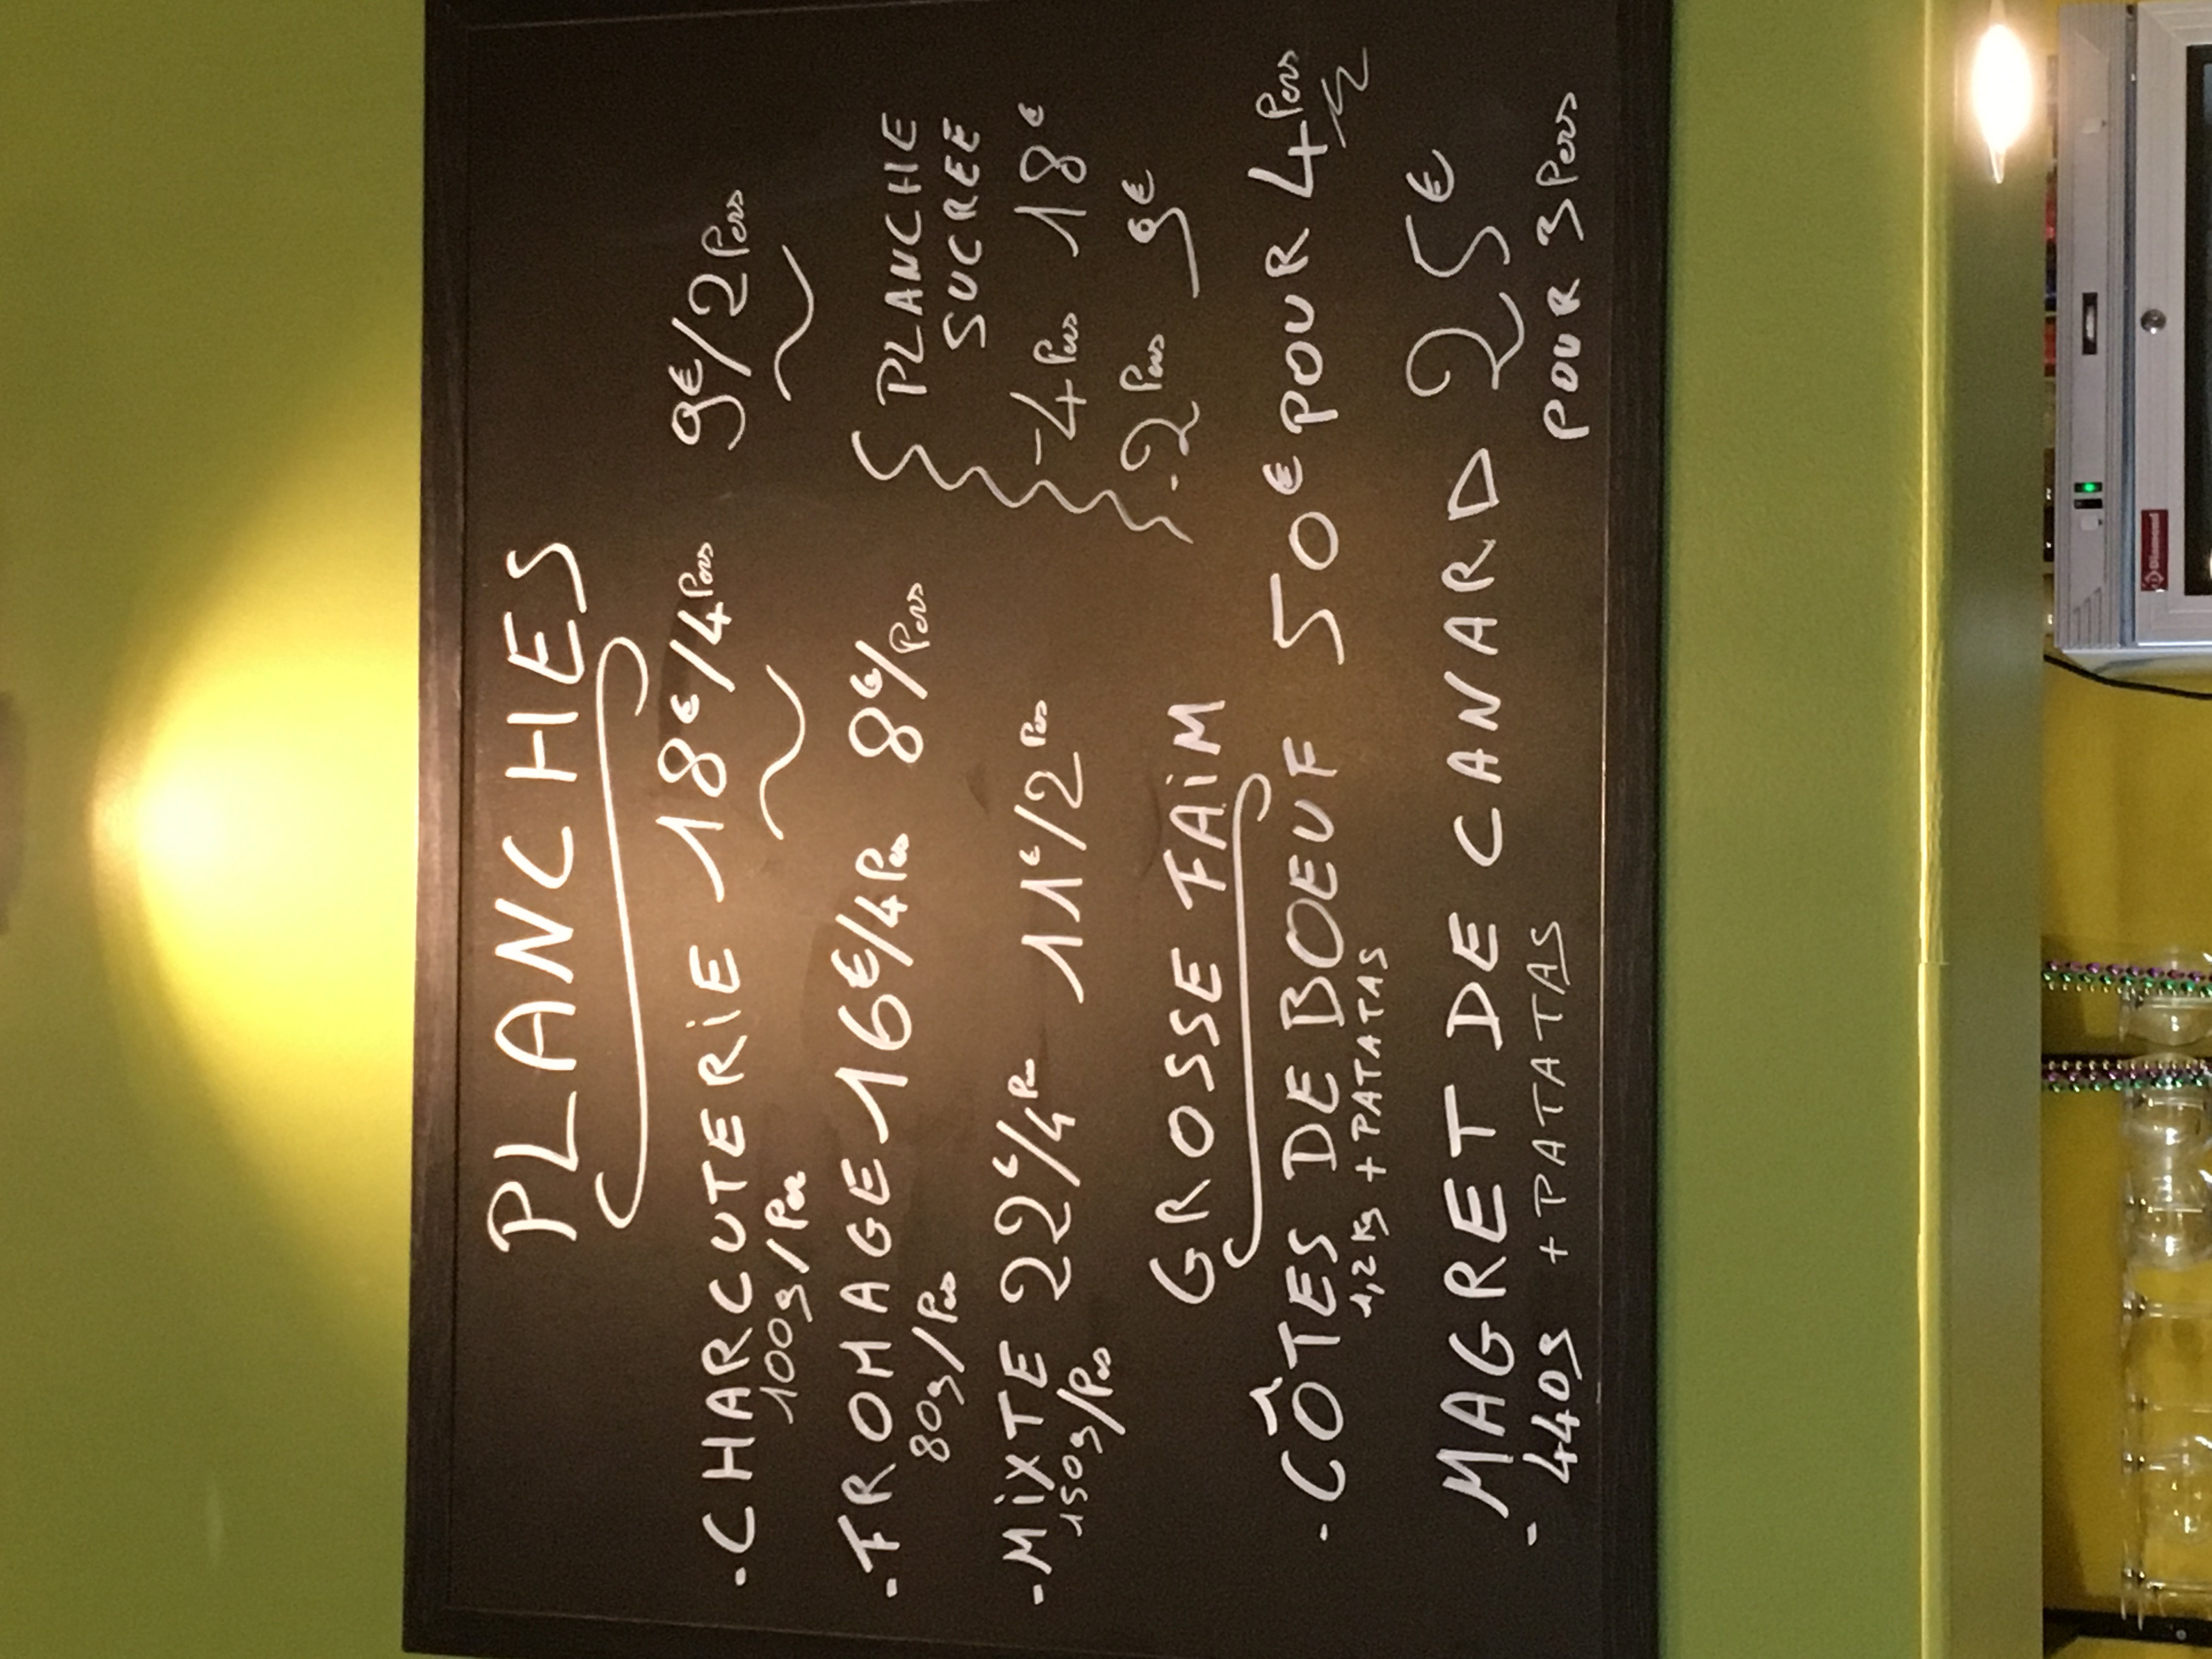 PLANCHES
- CHARCUTERIE 18€/4Pers 9€/2Pers
100g/Per
- FROMAGE 16€/4Pers 8€/Pers
80g/Pers
- MIXTE 22€/4Pr 11€/2Pers
150g/Pers
PLANCHE
SUCREE
-4Pers 18€
-2Pers 9€
GROSSE FAIM
- CÔTES DE BOEUF 50€ POUR 4Pers
1,2Kg + PATATAS
- MAGRET DE CANARD 25€
440g + PATATAS POUR 3Pers
Diamond